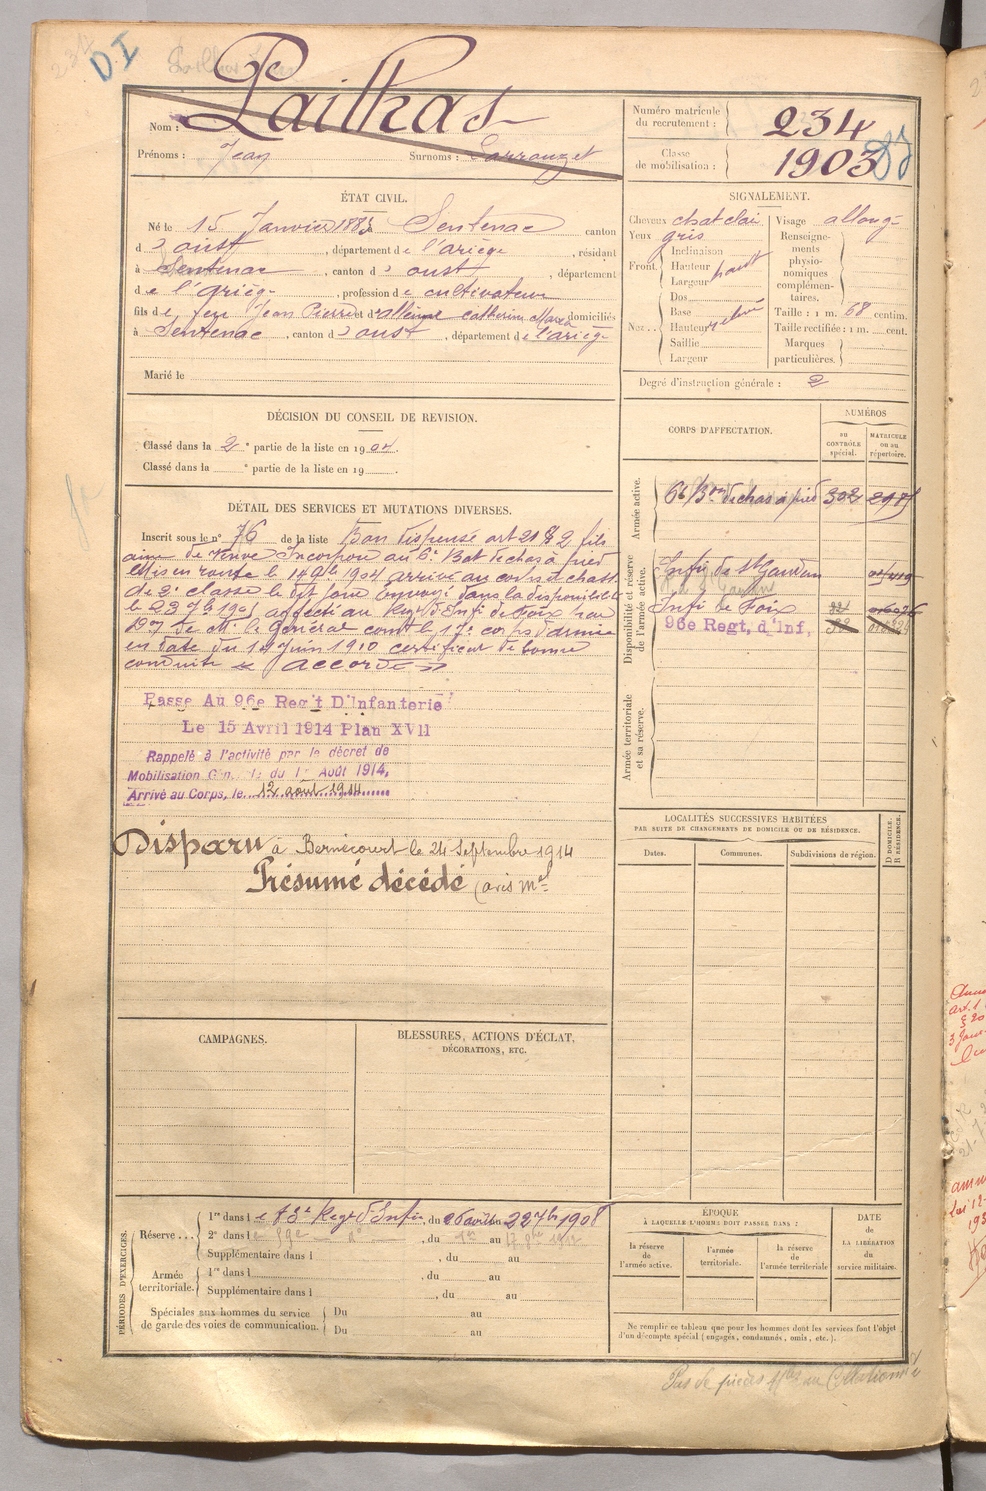 D.I
Pailhas
Nom :
Prénoms : Jean Surnoms : Larrouzet
Numéro matricule du recrutement : 234
Classe de mobilisation : 1903
ÉTAT CIVIL.
Né le 15 Janvier 1883 à Sentenac canton
d'oust, département de l'ariège, résidant
à Sentenac, canton d'oust, département
de l'Arièg-, profession de cultivateur
fils de feu Jean Pierre et d' catherine domiciliés
à Sentenac, canton d'oust, département de l'arièg-
Marié le
SIGNALEMENT.
Cheveux chat clai
Yeux gris
Front. Inclinaison
Hauteur haut
Largeur
Nez. Dos
Base
Hauteur relevé
Saillie
Largeur
Visage allong-
Renseignements physionomiques complémentaires.
Taille : 1 m. 68 centim.
Taille rectifiée : 1 m. cent.
Marques particulières.
Degré d'instruction générale : 2
DÉCISION DU CONSEIL DE REVISION.
Classé dans la 2e partie de la liste en 1904.
Classé dans la e partie de la liste en 19
DÉTAIL DES SERVICES ET MUTATIONS DIVERSES.
Inscrit sous le n° 76 de la liste Bon dispensé art 21 § 2 fils
aîné de veuve Incorporé au 6e Bat de chas à pied
Mis en route le 14 9bre 1904 arrivé au corps et chass
de 2e classe le dit jour Envoyé dans la disponibilité
le 22 7bre 1905 affecté au Regt d'Infie de Foix par
de Mr le Général comt le 17e corps d'armée
en date du 1er Juin 1910 certificat de bonne
conduite « accordé »
Passe Au 96e Reg't D'Infanterie
Le 15 Avril 1914 Plan XVII
Rappelé à l'activité par le décret de
Mobilisation Générale du 1er Août 1914,
Arrivé au Corps, le 12 août 1914
Disparu à Bernécourt le 24 Septembre 1914
Présumé décédé (avis Mel
CORPS D'AFFECTATION.
NUMÉROS
AU CONTRÔLE spécial.
MATRICULE ou au répertoire.
Armée active.
6e Bon de chas à pied 302
Disponibilité et réserve de l'armée active.
Infie de St Gaudens
Infie de Foix
96e Regt, d'Inf,
Armée territoriale et sa réserve.
LOCALITÉS SUCCESSIVES HABITÉES
PAR SUITE DE CHANGEMENTS DE DOMICILE OU DE RÉSIDENCE.
Dates. Communes. Subdivisions de région. D DOMICILE. R RÉSIDENCE.
CAMPAGNES.
BLESSURES, ACTIONS D'ÉCLAT,
DÉCORATIONS, ETC.
PÉRIODES D'EXERCICES.
Réserve ... 1re dans le 83e Regt d'Infie, du 26 août au 22 7bre 1908
2e dans l , du au
Supplémentaire dans l , du au
Armée territoriale. 1re dans l , du au
Supplémentaire dans l , du au
Spéciales aux hommes du service de garde des voies de communication. Du au
Du au
ÉPOQUE
À LAQUELLE L'HOMME DOIT PASSER DANS :
la réserve de l'armée active.
l'armée territoriale.
la réserve de l'armée territoriale
DATE de LA LIBÉRATION du service militaire.
Ne remplir ce tableau que pour les hommes dont les services font l'objet
d'un décompte spécial (engagés, condamnés, omis, etc.).
Pas de pièces